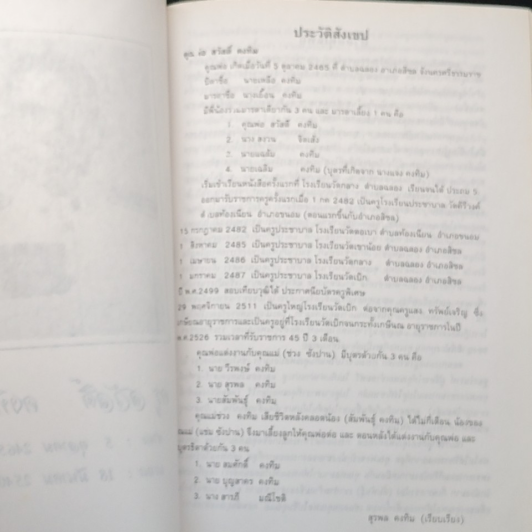 ประวัติสังเขป
คุณ พ่อ สวัสดิ์ คงทิม
คุณพ่อ เกิดเมื่อวันที่ 5 ตุลาคม 2465 ที่ ตำบลฉลอง อำเภอสิชล จังหวัดนครศรีธรรมราช
บิดาชื่อ นายเหมือ คงทิม
มารดาชื่อ นางเอื้อน คงทิม
มีพี่น้องร่วมมารดาเดียวกัน 3 คน และ มารดาเลี้ยง 1 คน คือ
1. คุณพ่อ สวัสดิ์ คงทิม
2. นาง สงวน
3. นายเฉลิม คงทิม
4. นายเฉลิม คงทิม (บุตรที่เกิดจาก นางแจง คงทิม)
เริ่มเข้าเรียนหนังสือครั้งแรกที่ โรงเรียนวัดกลาง ตำบลฉลอง เรียนจนได้ ประถม 5
ออกมารับราชการครูครั้งแรกเมื่อ 1 กค 2482 เป็นครูโรงเรียนประชาบาล วัดคีรีวงศ์
ตำบลท้องเนียน อำเภอขนอม (ตอนแรกขึ้นกับอำเภอสิชล)
15 กรกฎาคม 2482 เป็นครูประชาบาล โรงเรียนวัด ตำบลท้องเนียน อำเภอขนอม
1 สิงหาคม 2485 เป็นครูประชาบาล โรงเรียนวัดเขาน้อย ตำบลฉลอง อำเภอสิชล
1 เมษายน 2486 เป็นครูประชาบาล โรงเรียนวัดกลาง ตำบลฉลอง อำเภอสิชล
1 มกราคม 2487 เป็นครูประชาบาล โรงเรียนวัดเบิก ตำบลฉลอง อำเภอสิชล
ปี พ.ศ.2499 สอบเทียบวุฒิได้ ประกาศนียบัตรครูพิเศษ
29 พฤศจิกายน 2511 เป็นครูใหญ่โรงเรียนวัดเบิก ต่อจากครูแสง ทรัพย์เจริญ ซึ่ง
เกษียณอายุราชการและเป็นครูอยู่ที่โรงเรียนวัดเบิกจนกระทั่งเกษียณ อายุราชการในปี
พ.ศ.2526 รวมเวลาที่รับราชการ 45 ปี 3 เดือน
คุณพ่อแต่งงานกับคุณแม่ (ช่วง ชังปาน) มีบุตรด้วยกัน 3 คน คือ
1. นาย วีรพงษ์ คงทิม
2. นาย สุรพล คงทิม
3. นายสัมพันธุ์ คงทิม
คุณแม่ช่วง คงทิม เสียชีวิตหลังคลอดน้อง (สัมพันธุ์ คงทิม) ได้ไม่กี่เดือน น้องของ
คุณแม่ (แชม ชังปาน) จึงมาเลี้ยงลูกให้คุณพ่อต่อ และ ตอนหลังได้แต่งงานกับคุณพ่อ และ
บุตรธิดาด้วยกัน 3 คน
1. นาย สมศักดิ์ คงทิม
2. นาย บุญสาคร คงทิม
3. นาง สารภี มณีโชติ
สุรพล คงทิม (เรียบเรียง)